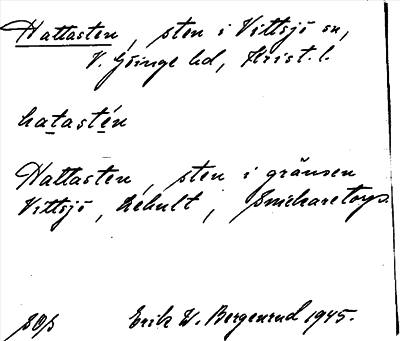 Hattasten, sten i Vittsjö sn,
V. Göinge hd, Krist. l.
hatastén
Hattasten, sten i gränsen
Vittsjö, Lehult, Snickaretorp.
Erik W. Bergenrud 1945.